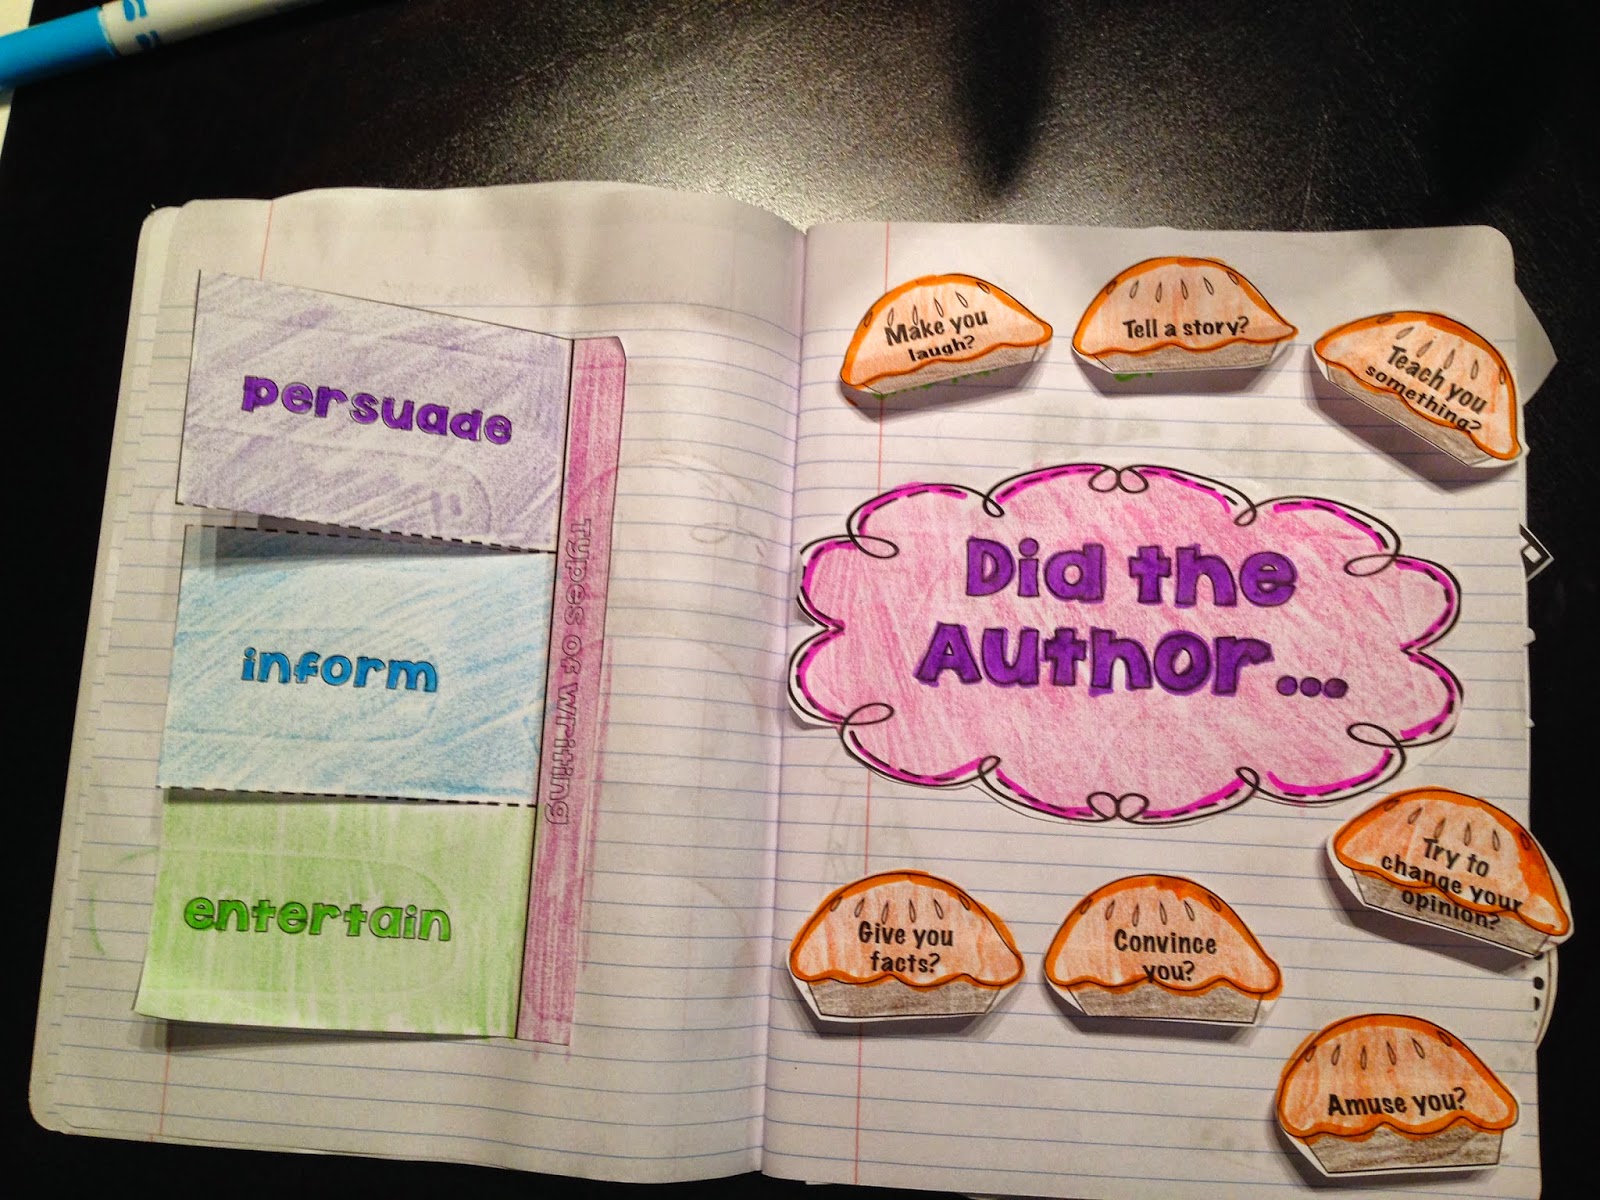 persuade
inform
entertain
Types of writing
Make you
laugh?
Tell a story?
Teach you
something?
Did the
Author...
Try to
change your
opinion?
Give you
facts?
Convince
you?
Amuse you?